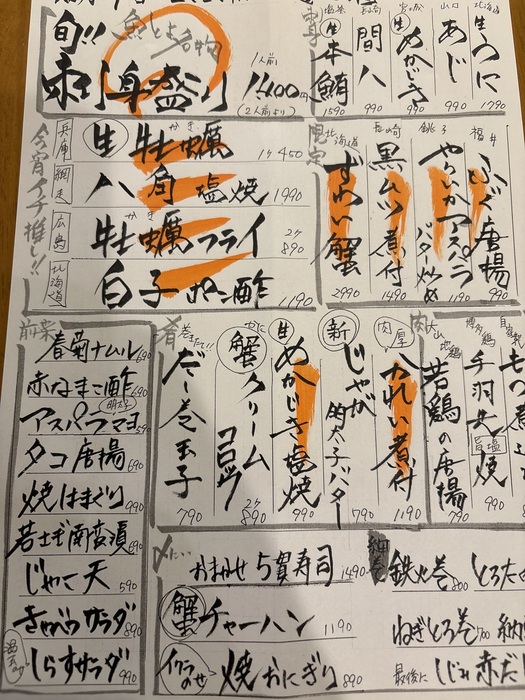 旬!! 魚とま名物
刺身盛り 1人前 1400円
(2人前より)
北海道 生うに 1990
山口 あじ 990
生めかじき 990
間八 990
生本鮪 1590
今宵イチ推し!!
兵庫 生牡蠣 かき 1ケ450
網走 八角塩焼 1990
広島 牡蠣フライ かき 2ケ890
北海道 白子ポン酢 1190
限定
福井 ふぐ唐揚 990
銚子 やりいかアスパラバター炒め 1190
長崎 黒ムツ煮付 1490
北海道 ずわい蟹 2990
前菜
春菊ナムル 690
赤なまこ酢 690
アスパラ明太子マヨ 590
タコ唐揚 690
焼はまぐり 990
若さぎ南蛮漬 690
じゃこ天 590
きゃべつサラダ 890
温玉のせ しらすサラダ 990
肴
巻きたて!! だし巻玉子 790
蟹クリームコロッケ かに 2ケ 890
生めかじき塩焼 990
新じゃが明太子バター 790
肉厚 かれい煮付 1190
肉
大山地鶏 若鶏の唐揚 790
博多鶏 手羽先旨塩焼 990
自家製 もつ煮
〆
おまかせ5貫寿司 1490
蟹チャーハン 1190
イクラのせ 焼おにぎり 890
細巻 鉄火巻 800
とろた
ねぎとろ巻 700
納
最後に しじみ赤だし